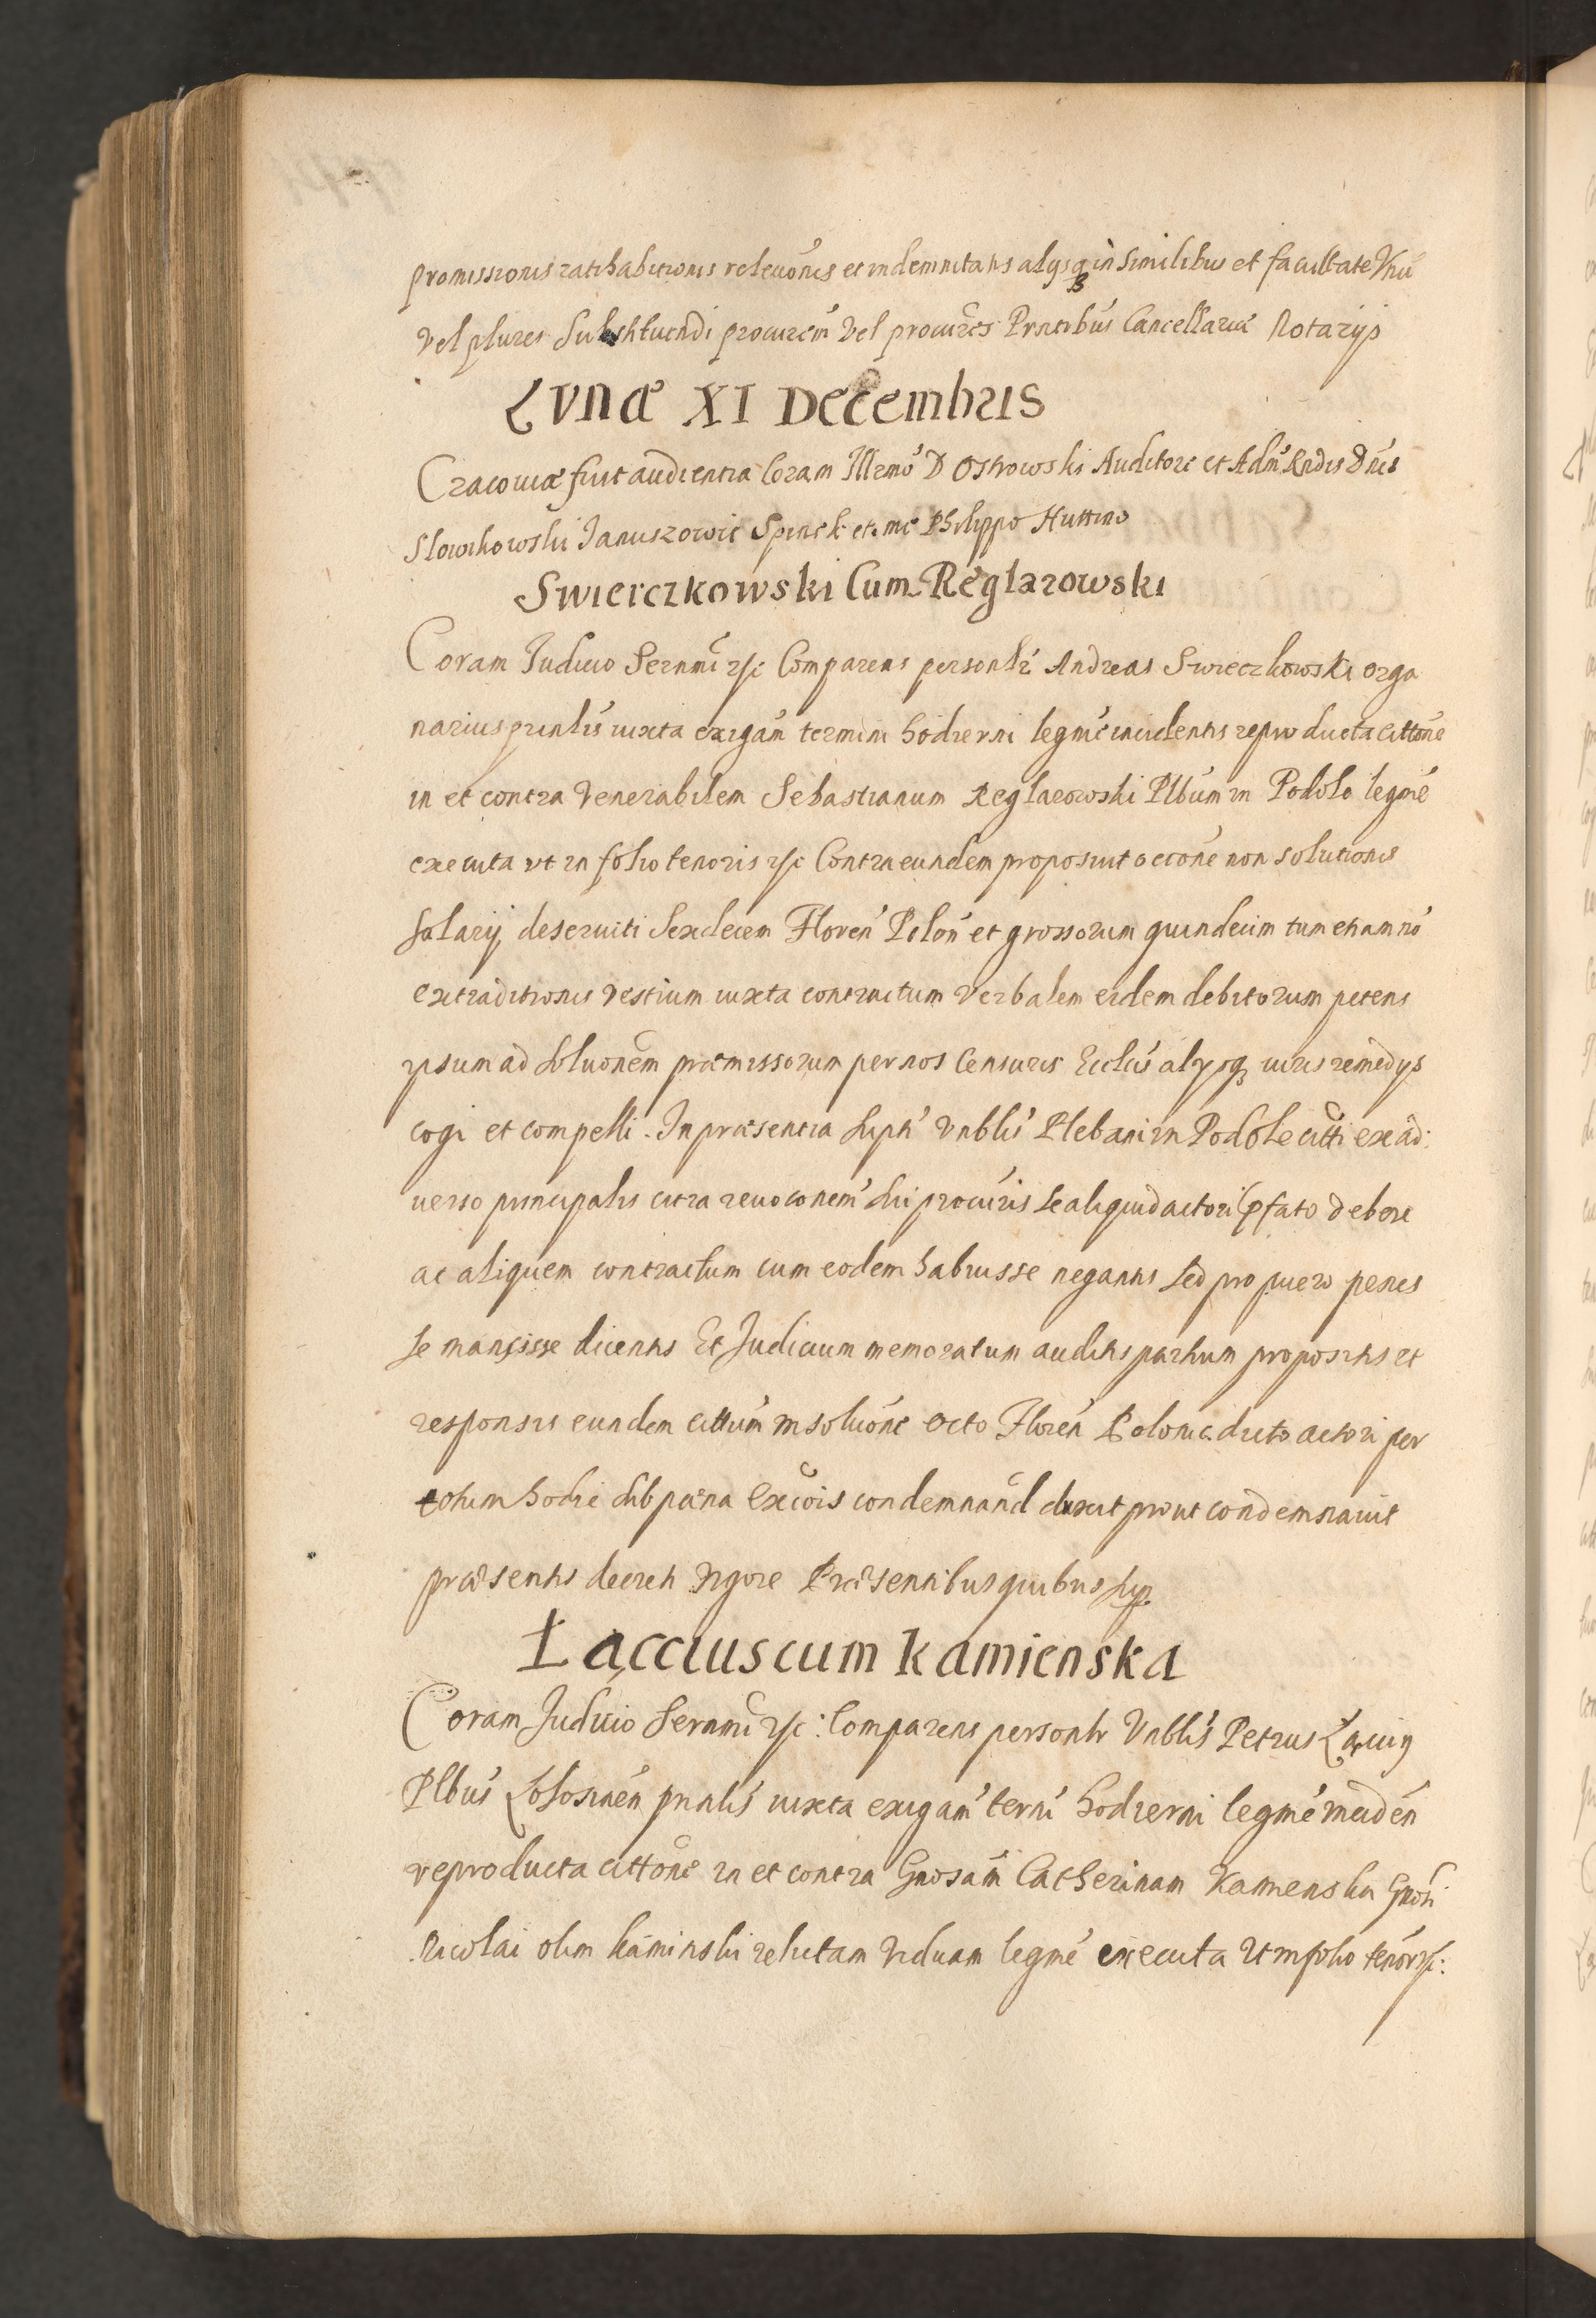 promissionis ratihabitionis releuónis et indemnitatis alysq in similibus et facultate Vnú
vel plures Substituendi procurem̃ Vel procures̃ Prntibús Cancellariæ Notarijs
Lvnæ XI Decembris
Cracouiæ fuit audientia Coram Illrmó D Ostrowski Auditore et Adm̃ Rndis Dn̄is
Slowikowski Januszowic Spinek et me Philippo Huttino
Swierczkowski Cum Reglarowski
Coram Judicio Sernmi̅ rsc Comparens personlr̃ Andreas Swieczkowski orga
narius prinlis̃ iuxta exigám termini hodierni legmé incidentis reproducta cittoné
in et contra Venerabilem Sebastianum Reglarowski Plbúm in Podole legmé
executa vt in folio tenoris rsc Contra eundem proposuit actioné non solutionis
salarij deseruiti Sexdecem Florén Polón et grossorum quindecim tum etiam nó
extraditionis vestium iuxta contractum Verbalem eidem debitorum petens
ipsum ad soluoném præmissorum per nos Censuris Ecclis̃ alysq iuris remedys
cogi et compelli. In præsentia supti̅ Vnblis̃ Plebani in Podole citti̅ ex ad:
uerso principalis citra reuoconem̃ sui procúris se aliquid actori pfato debere
ac aliquem contractum cum eodem habuisse negantis sed pro puero penes
se mansisse dicentis Et Judicium memoratum auditis partium propositis et
responsis eundem cittúm in soluóne octo Florén Poloniæ dicto actori per
totum hodie sub pæna Excóis condemnand̃ duxit prout condemnauit
præsentis decreti vigore Præsentibus quibus sup.
Łącciuscum Kamienska
Coram Judicio Sernmi̅ rsc: Comparens personlr Vnblis̃ Petrus Łącius
Plbús Łososinén prinlis̃ iuxta exigám termí hodierni legmé incidén
reproducta cittoné in et contra Gnosám Catherinam Kamienska Gnosí
Nicolai olim kaminski relictam viduam legmé executa ut in folio tenór rsc: